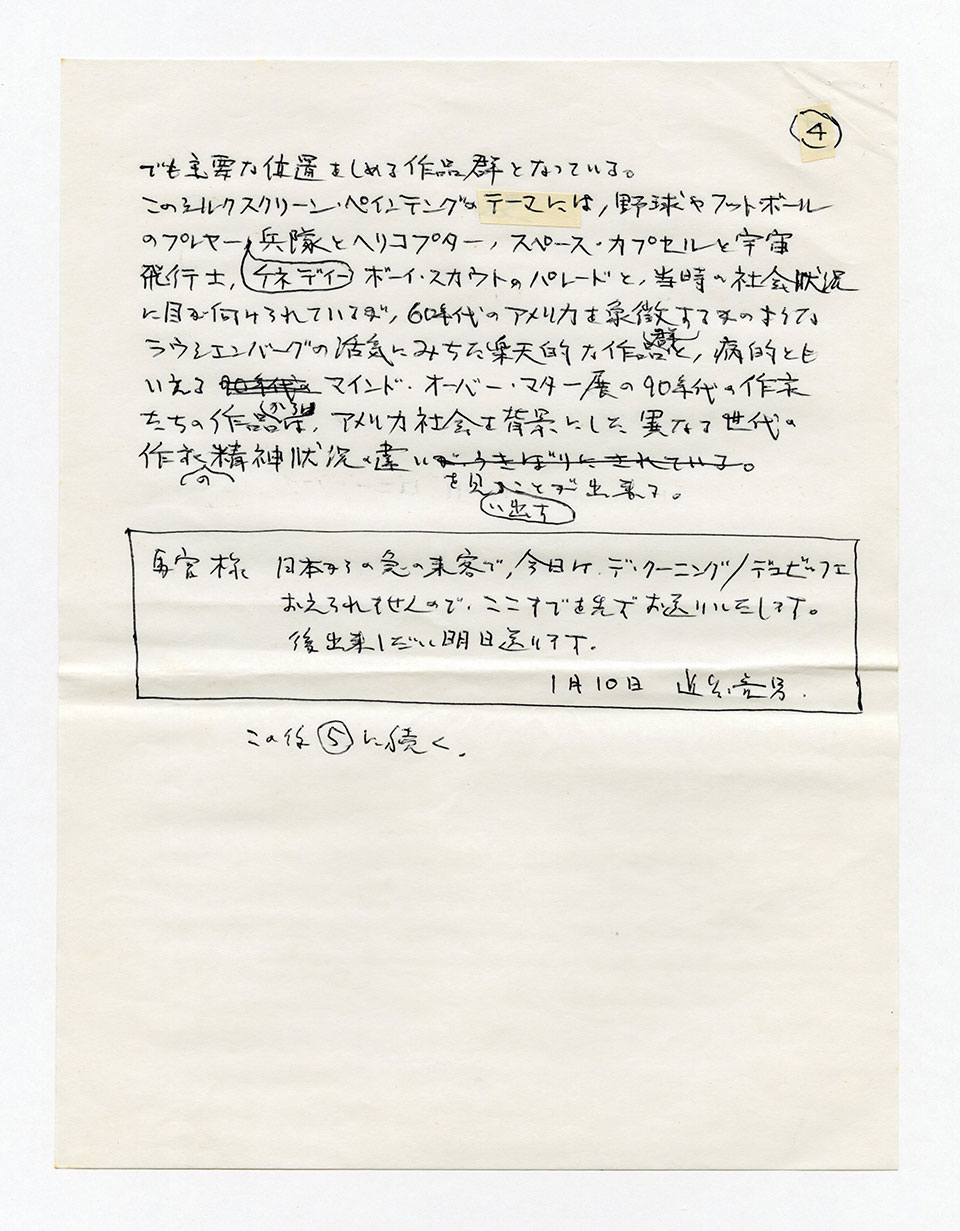 ④
でも主要な位置をしめる作品群となっている。
このシルクスクリーン・ペインテングのテーマには,野球やフットボール
のプレヤー,兵隊とヘリコプター,スペース・カプセルと宇宙
飛行士,ケネディー ボーイ・スカウトのパレードと,当時の社会状況
に目が向けられているが,60年代のアメリカを象徴するかのような
ラウシェンバーグの活気にみちた楽天的な作品群と,病的とも
いえる 90年代の マインド・オーバー・マター展の90年代の作家
たちの作品からは,アメリカ社会を背景にした異なる世代の
作家の精神状況の違いが,うきぼりにされている。
を見ることが出来る。
い出す
馬宮様 日本からの急の来客で,今日は,デ・クーニング/デュビュッフェ
おえられませんので,ここまでを先でお送りいたします。
後出来しだい明日送ります。
1月10日 近藤竜男.
この後⑤に続く.